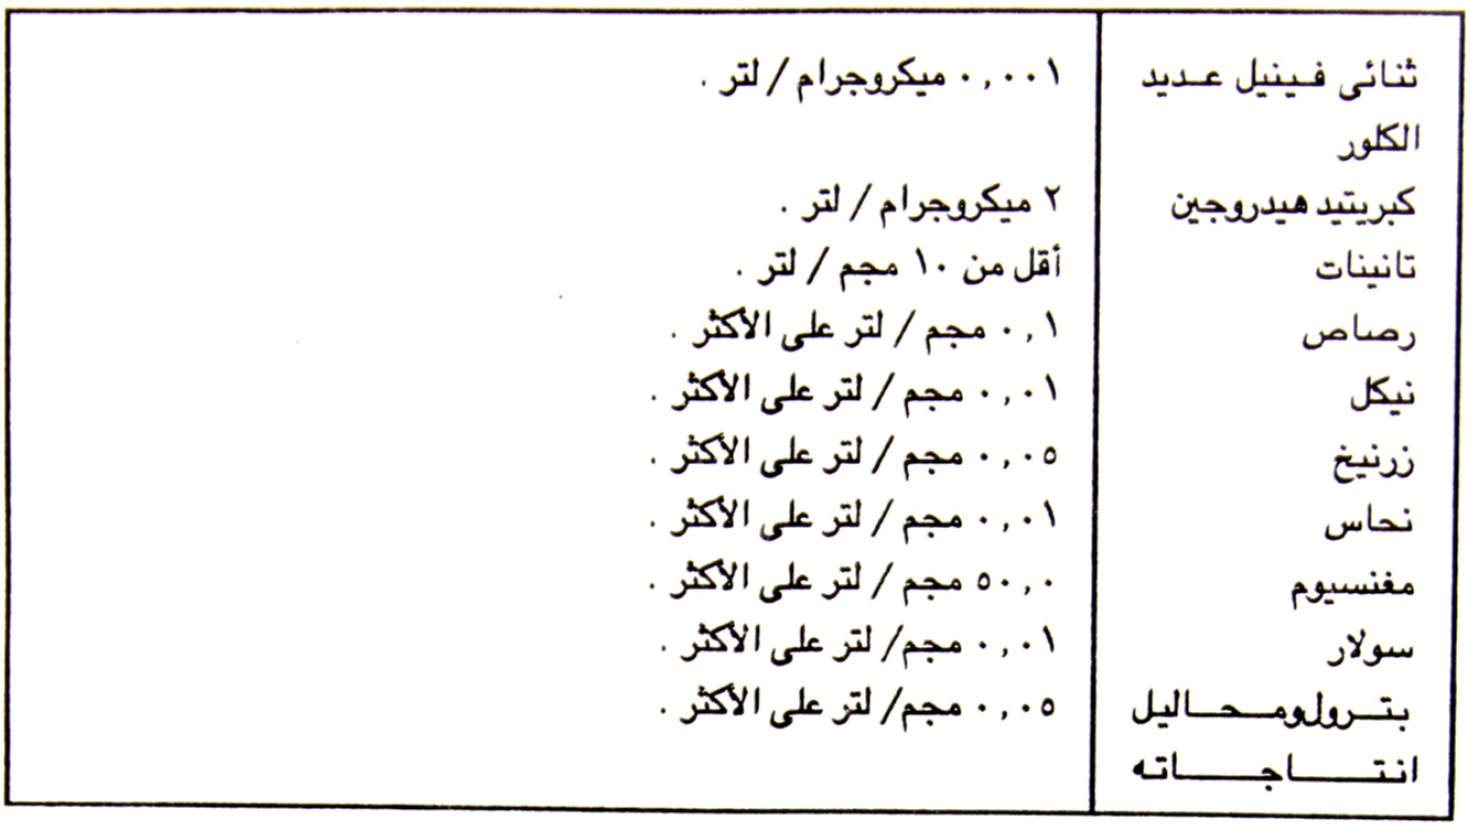 ثنائى فينيل عديد ٠,٠٠١ ميكروجرام / لتر .
الكلور
كبريتيد هيدروجين ٢ ميكروجرام / لتر .
تانينات أقل من ١٠ مجم / لتر .
رصاص ٠,١ مجم / لتر على الأكثر .
نيكل ٠,٠١ مجم / لتر على الأكثر .
زرنيخ ٠,٠٥ مجم / لتر على الأكثر .
نحاس ٠,٠١ مجم / لتر على الأكثر .
مغنسيوم ٥٠,٠ مجم / لتر على الأكثر .
سولار ٠,٠١ مجم/ لتر على الأكثر .
بترول ومحاليل ٠,٠٥ مجم/ لتر على الأكثر .
انتاجاته